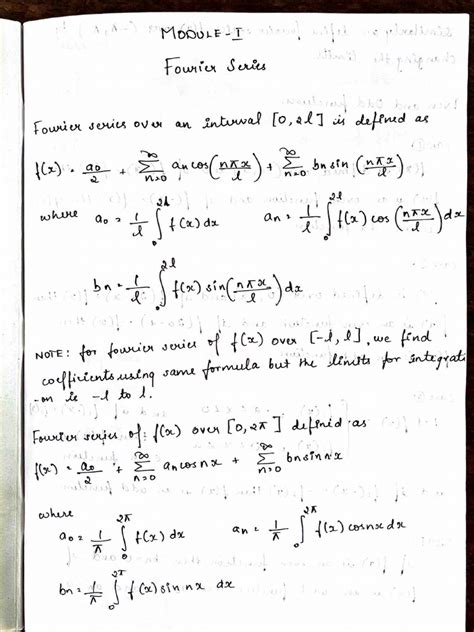 MODULE-I
Fourier Series
Fourier series over an interval [0, 2l] is defined as
f(x) = a₀/2 + ∞∑n=0 an cos(nπx/l) + ∞∑n=0 bn sin(nπx/l)
where a₀ = 1/l ∫₀^2l f(x) dx an = 1/l ∫₀^2l f(x) cos(nπx/l) dx
bn = 1/l ∫₀^2l f(x) sin(nπx/l) dx
NOTE: for fourier series of f(x) over [-l, l], we find
coefficients using same formula but the limits for integrati
-on is -l to l.
Fourier series of f(x) over [0, 2π] defined as
f(x) = a₀/2 + ∞∑n=0 an cos nx + ∞∑n=0 bn sin nx
where
a₀ = 1/π ∫₀^2π f(x) dx an = 1/π ∫₀^2π f(x) cosnx dx
bn = 1/π ∫₀^2π f(x) sin nx dx